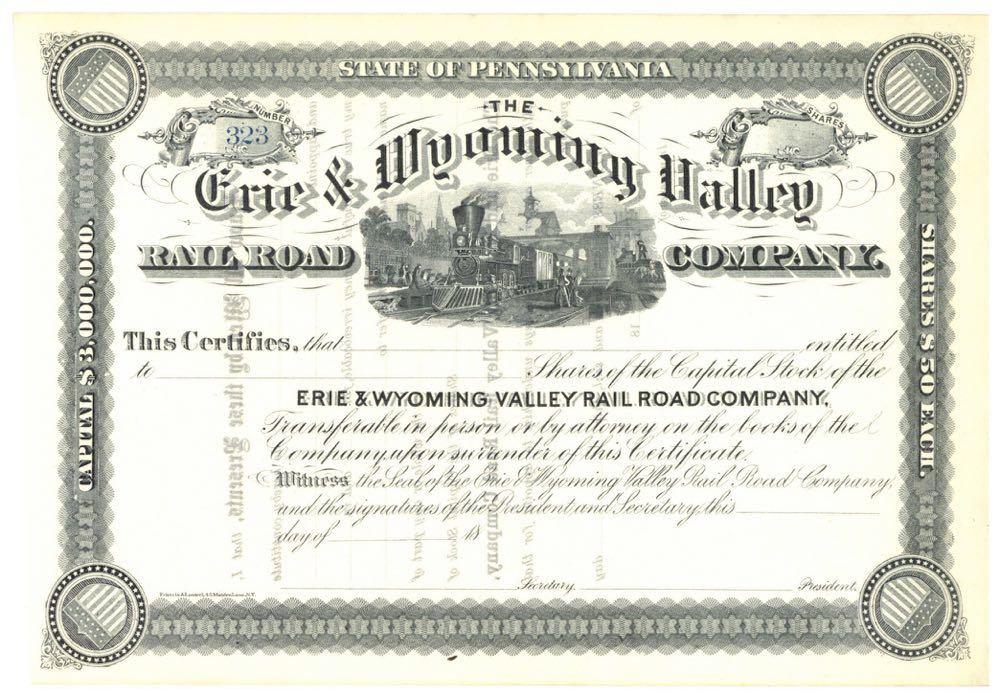 STATE OF PENNSYLVANIA
NUMBER
323
SHARES
THE
Erie & Wyoming Valley
RAIL ROAD COMPANY.
CAPITAL $3,000,000.
SHARES $50 EACH.
This Certifies, that entitled
to Shares of the Capital Stock of the
ERIE & WYOMING VALLEY RAIL ROAD COMPANY,
Transferable in person or by attorney on the books of the
Company upon surrender of this Certificate.
Witness the Seal of the Erie & Wyoming Valley Rail Road Company,
and the signatures of the President and Secretary, this
day of 18
Secretary. President.